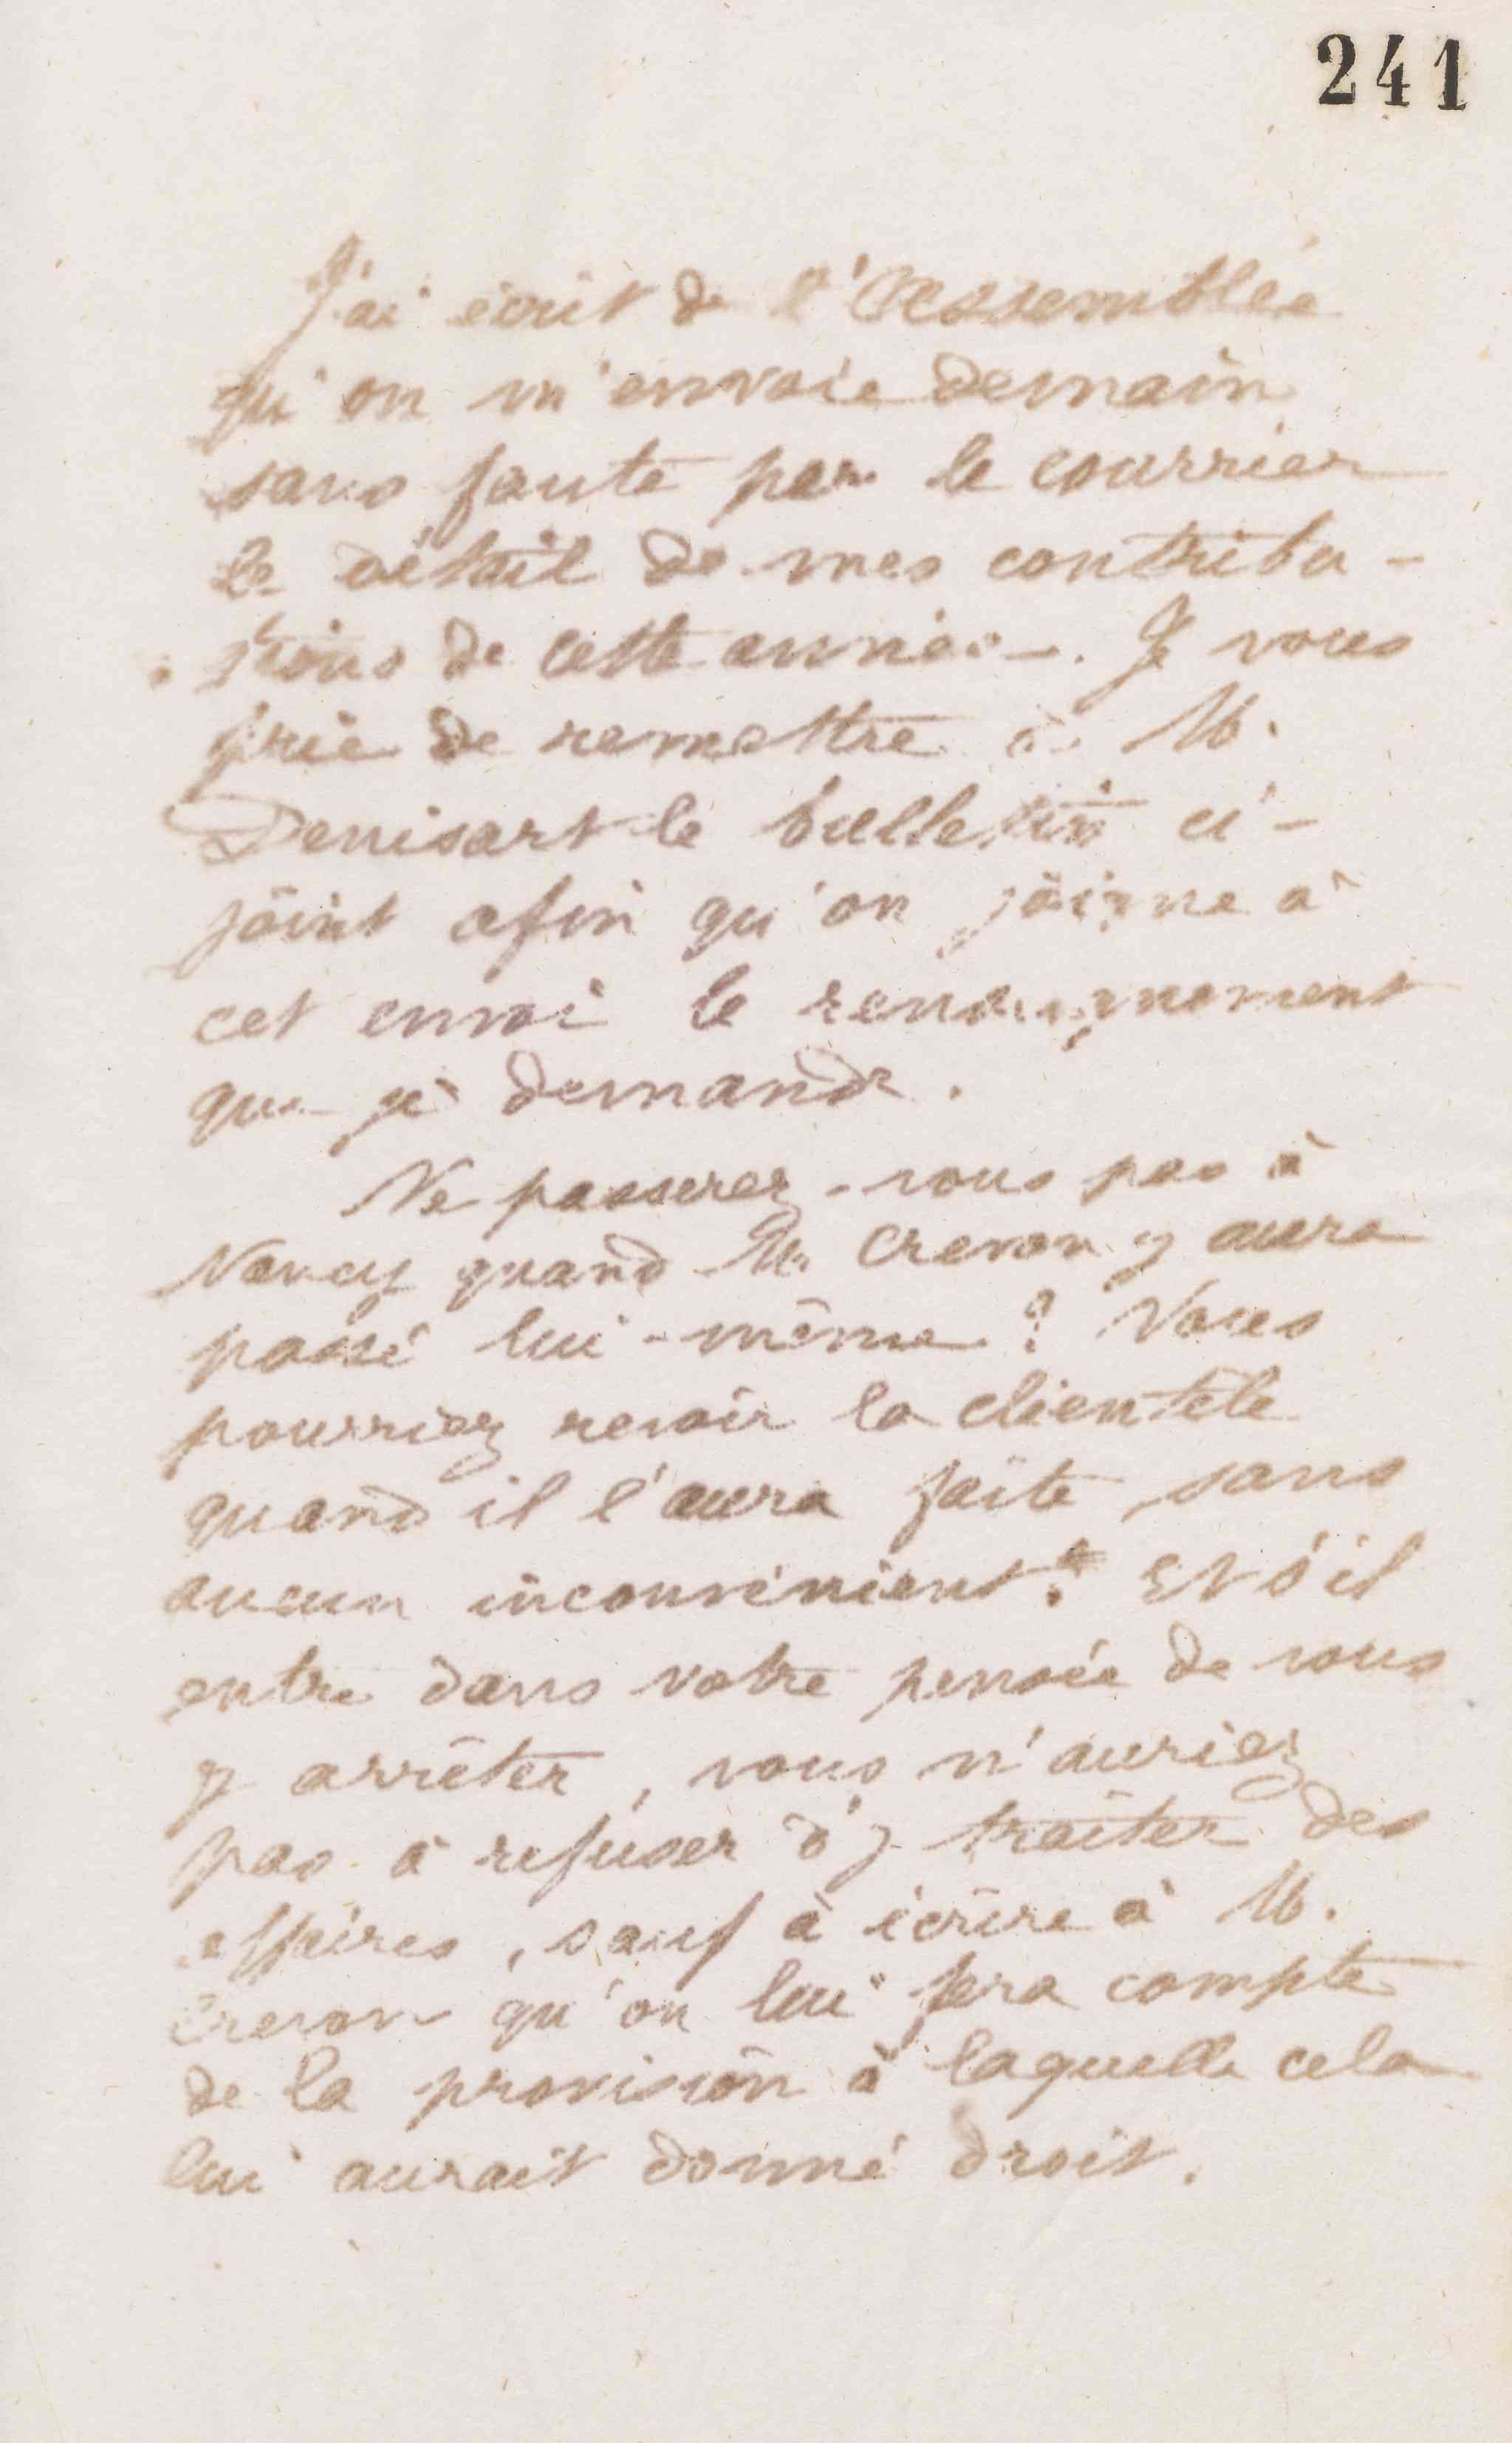 241
J'ai écrit de l'Assemblée
qu'on m'envoie demain
sans faute par le courrier
le détail de mes contribu-
tions de cette année. Je vous
prie de remettre à M.
Denisart le bulletin ci-
joint afin qu'on joigne à
cet envoi le renseignement
que je demande.
Ne passerez-vous pas à
Nancy quand M. Crevon y aura
passé lui-même ? Vous
pourriez revoir la clientèle
quand il l'aura faite, sans
aucun inconvénient. Et s'il
entre dans votre pensée de vous
y arrêter, vous n'auriez
pas à refuser d'y traiter des
affaires, sauf à écrire à M.
Crevon qu'on lui fera compte
de la provision à laquelle cela
lui aurait donné droit.